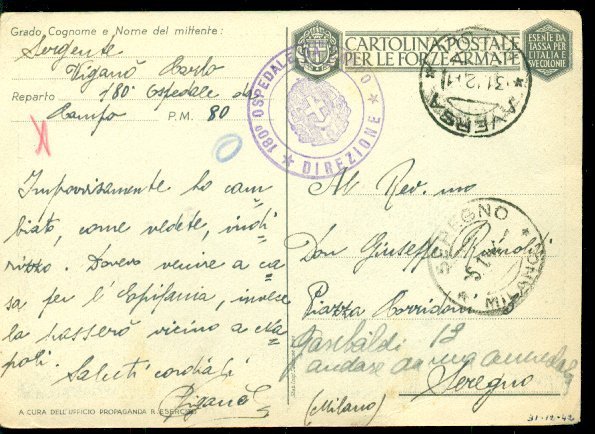 Grado Cognome e Nome del mittente:
Sergente
Viganò Carlo
Reparto 180° Ospedale da
Campo P.M. 80
CARTOLINA POSTALE
PER LE FORZE ARMATE
ESENTE DA
TASSA PER
L'ITALIA E
SUE COLONIE
180° OSPEDALE DA CAMPO
DIREZIONE
AVERSA
Improvvisamente ho cam=
biato, come vedete, indi=
rizzo. Dovevo venire a ca=
sa per l'Epifania, invece
la passerò vicino a Na=
poli.
Saluti cordiali
Viganò C
Al Rev. mo
Don Giuseppe
Piazza Corridoni
Garibaldi 12
andare da
Seregno
(Milano)
SEREGNO
MILANO
A CURA DELL'UFFICIO PROPAGANDA R. ESERCITO
31-12-42